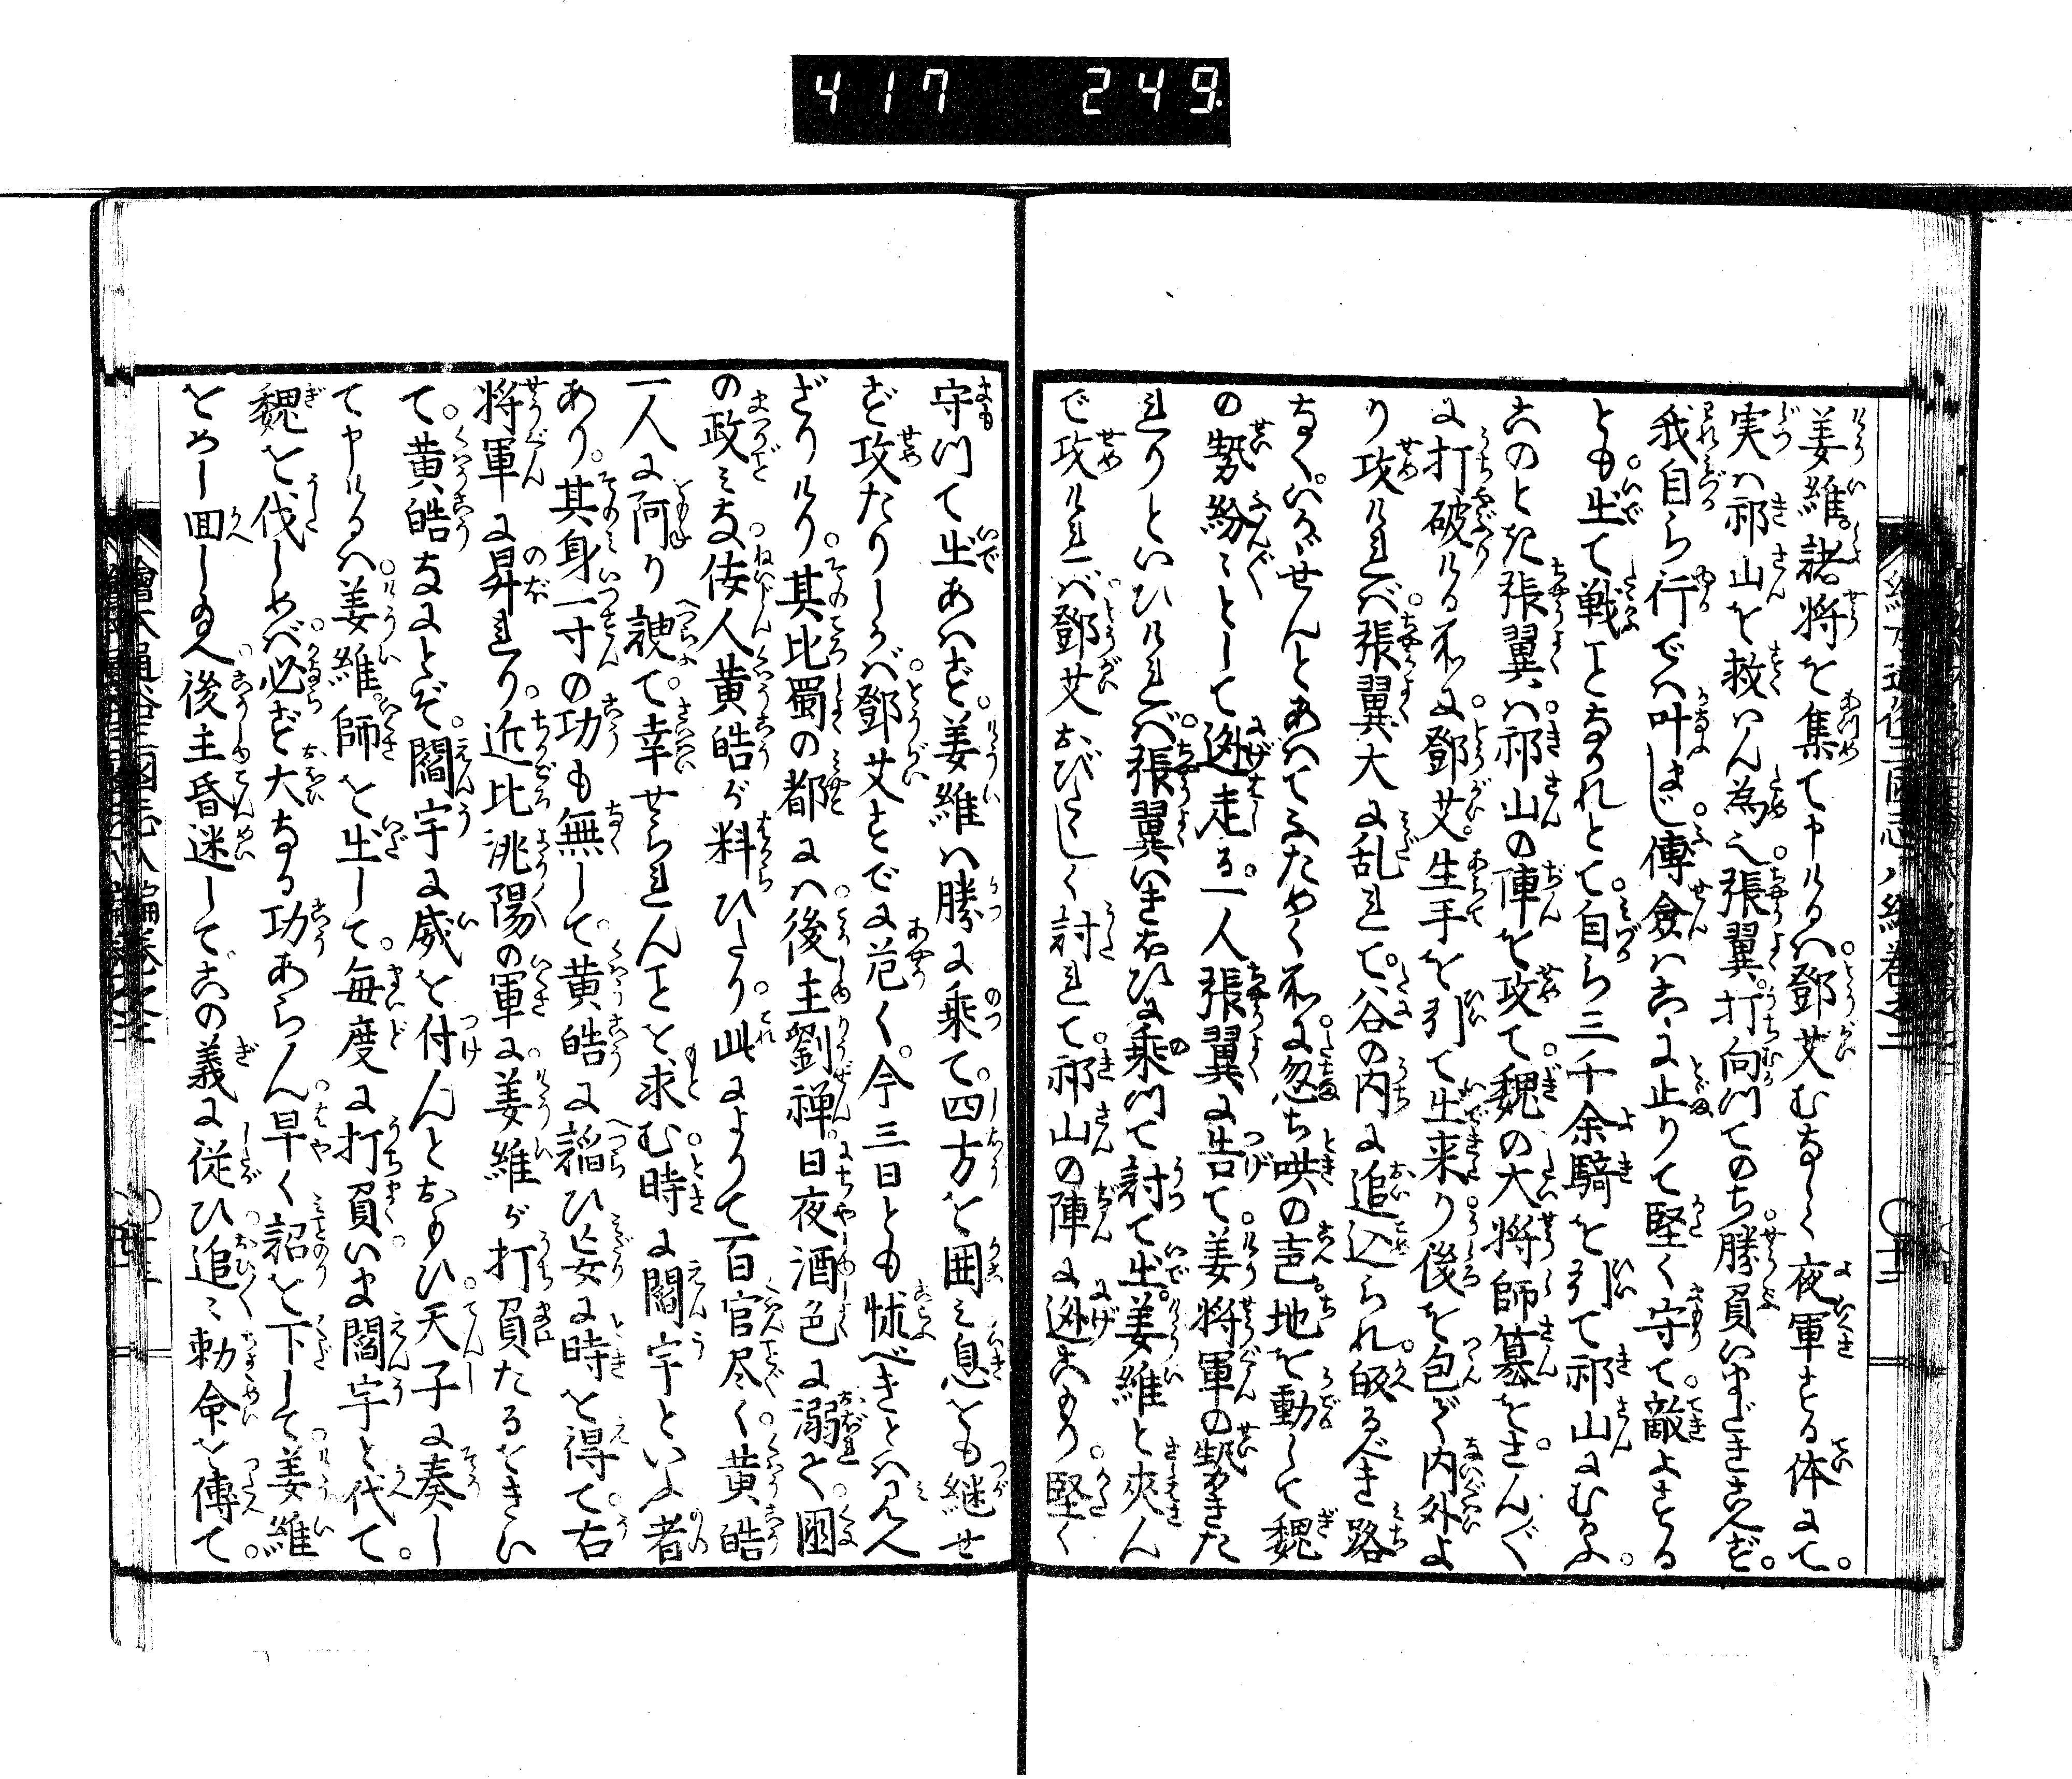 417 249.
姜維諸将を集て申けるハ鄧艾むなしく夜軍する体にて。
実ハ祁山を救ハん為也張翼打向ツてのち勝負いまだきこえず。
我自ら行でハ叶まじ傅僉ハこゝに止りて堅く守て敵よする
とも出て戦ことなかれとて自ら三千余騎を引て祁山にむかふ。
このとき張翼ハ祁山の陣を攻て魏の大将師纂をさんぐ
に打破ける所に鄧艾生手を引て出来り後を包で内外よ
り攻ければ張翼大に乱れて谷の内に追込られ皈るべき路
なく。いかゞせんとあハてふためく所に忽ち哄の声地を動して魏
の勢紛〻として迯走る一人張翼に告て姜将軍の勢きた
れりといひければ張翼いきおひに乗ツて討て出姜維と夾ん
で攻ければ鄧艾おびたゝしく討れて祁山の陣に迯こもり堅く
守ツて出あハず姜維ハ勝に乗て四方を囲ミ息をも継せ
ず攻たりしかば鄧艾すでに危く今三日とも怺べきとハ見へ
ざりけり其比蜀の都にハ後主劉禅日夜酒色に溺て国
の政ミな佞人黄皓が料ひたり此によりて百官尽く黄皓
一人に阿り諛て幸せられんことを求む時に閻宇といふ者
あり其身一寸の功も無して黄皓に謟ひ妄に時を得て右
将軍に昇れり近比洮陽の軍に姜維が打負たるをきい
て。黄皓なにとぞ閻宇に威を付んとおもひ天子に奏し
て申けるハ姜維師を出して毎度に打負いま閻宇と代て。
魏を伐しめば必ず大なる功あらん早く詔を下して姜維
をめし回し玉へ後主昏迷してこの義に従ひ追〻勅命を傳て。